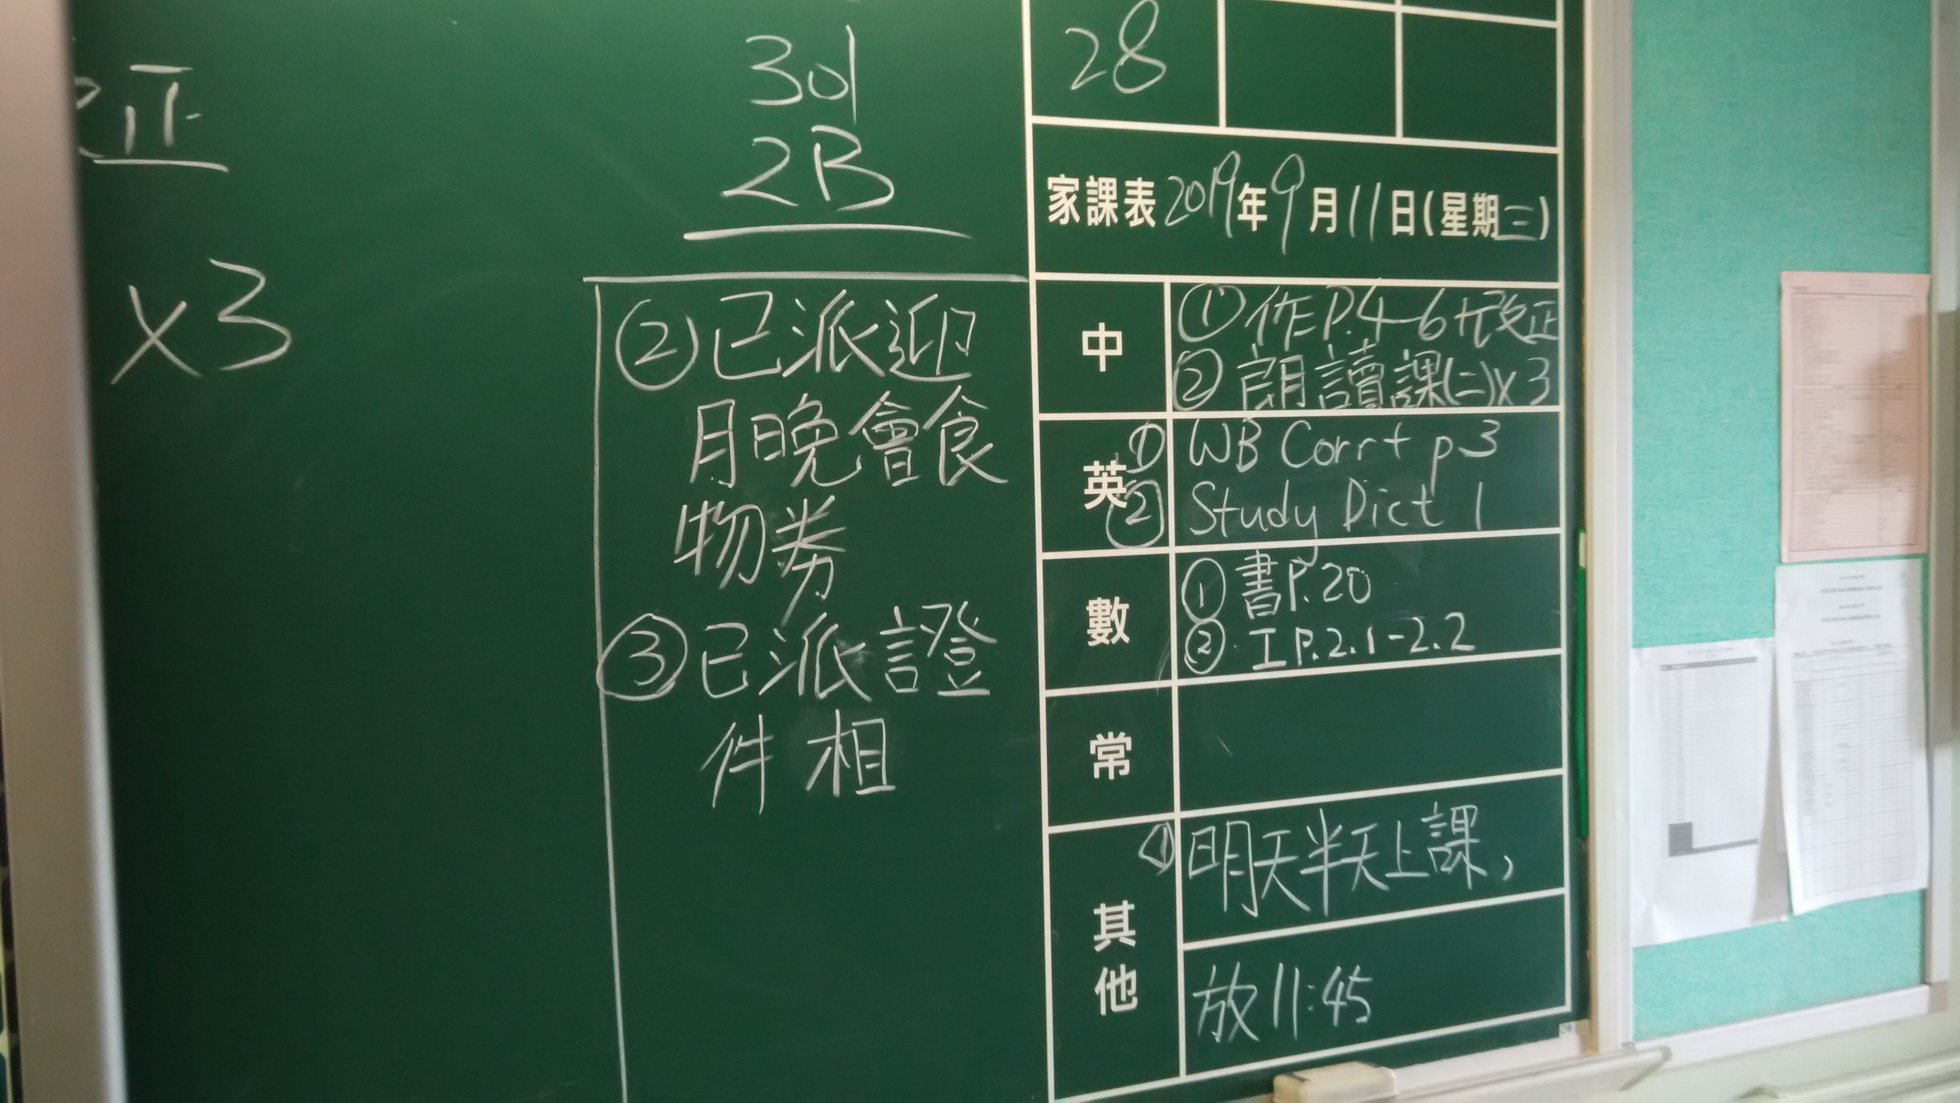 正
x3
301
2B
②已派迎
月晚會食
物券
③已派證
件相
28
家課表2019年9月11日(星期三)
中
①作P.4-6+改正
②朗讀課(二)x3
英
① WB Corr+ p3
② Study Dict 1
數
①書P.20
②. I P.2.1-2.2
常
其他
①明天半天上課,
放11:45